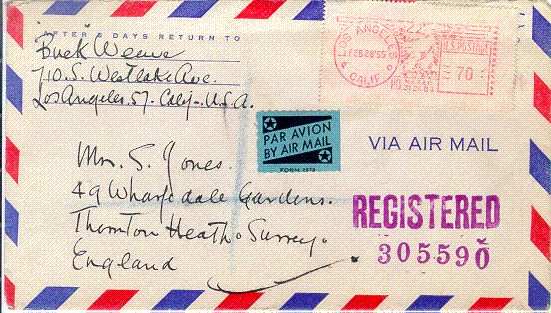 AFTER 5 DAYS RETURN TO
Buck Weave
710. S. Westlake Ave.
Los Angeles. 57. Calif. U.S.A.
LOS ANGELES
FEB 28 '55
CALIF.
U.S. POSTAGE
70
PAR AVION
BY AIR MAIL
FORM 2978
VIA AIR MAIL
Mrs. S. Jones.
49 Wharfedale Gardens.
Thornton Heath. Surrey.
England
REGISTERED
305590